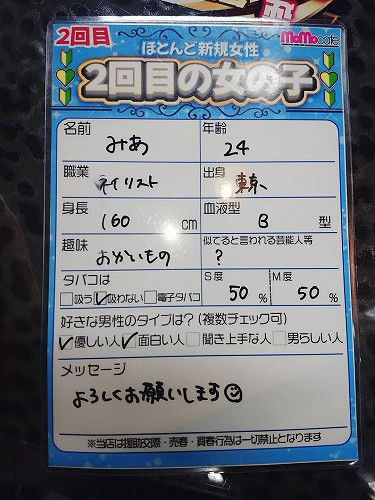 2回目
ほとんど新規女性
MoMocafe
2回目の女の子
名前 みあ
年齢 24
職業 ネイリスト
出身 東京
身長 160 cm
血液型 B 型
趣味 おかいもの
似てると言われる芸能人等 ?
タバコは
□吸う ☑吸わない □電子タバコ
S度 50 %
M度 50 %
好きな男性のタイプは?(複数チェック可)
☑優しい人 ☑面白い人 □聞き上手な人 □男らしい人
メッセージ
よろしくお願いします☺
※当店は援助交際・売春・買春行為は一切禁止となります